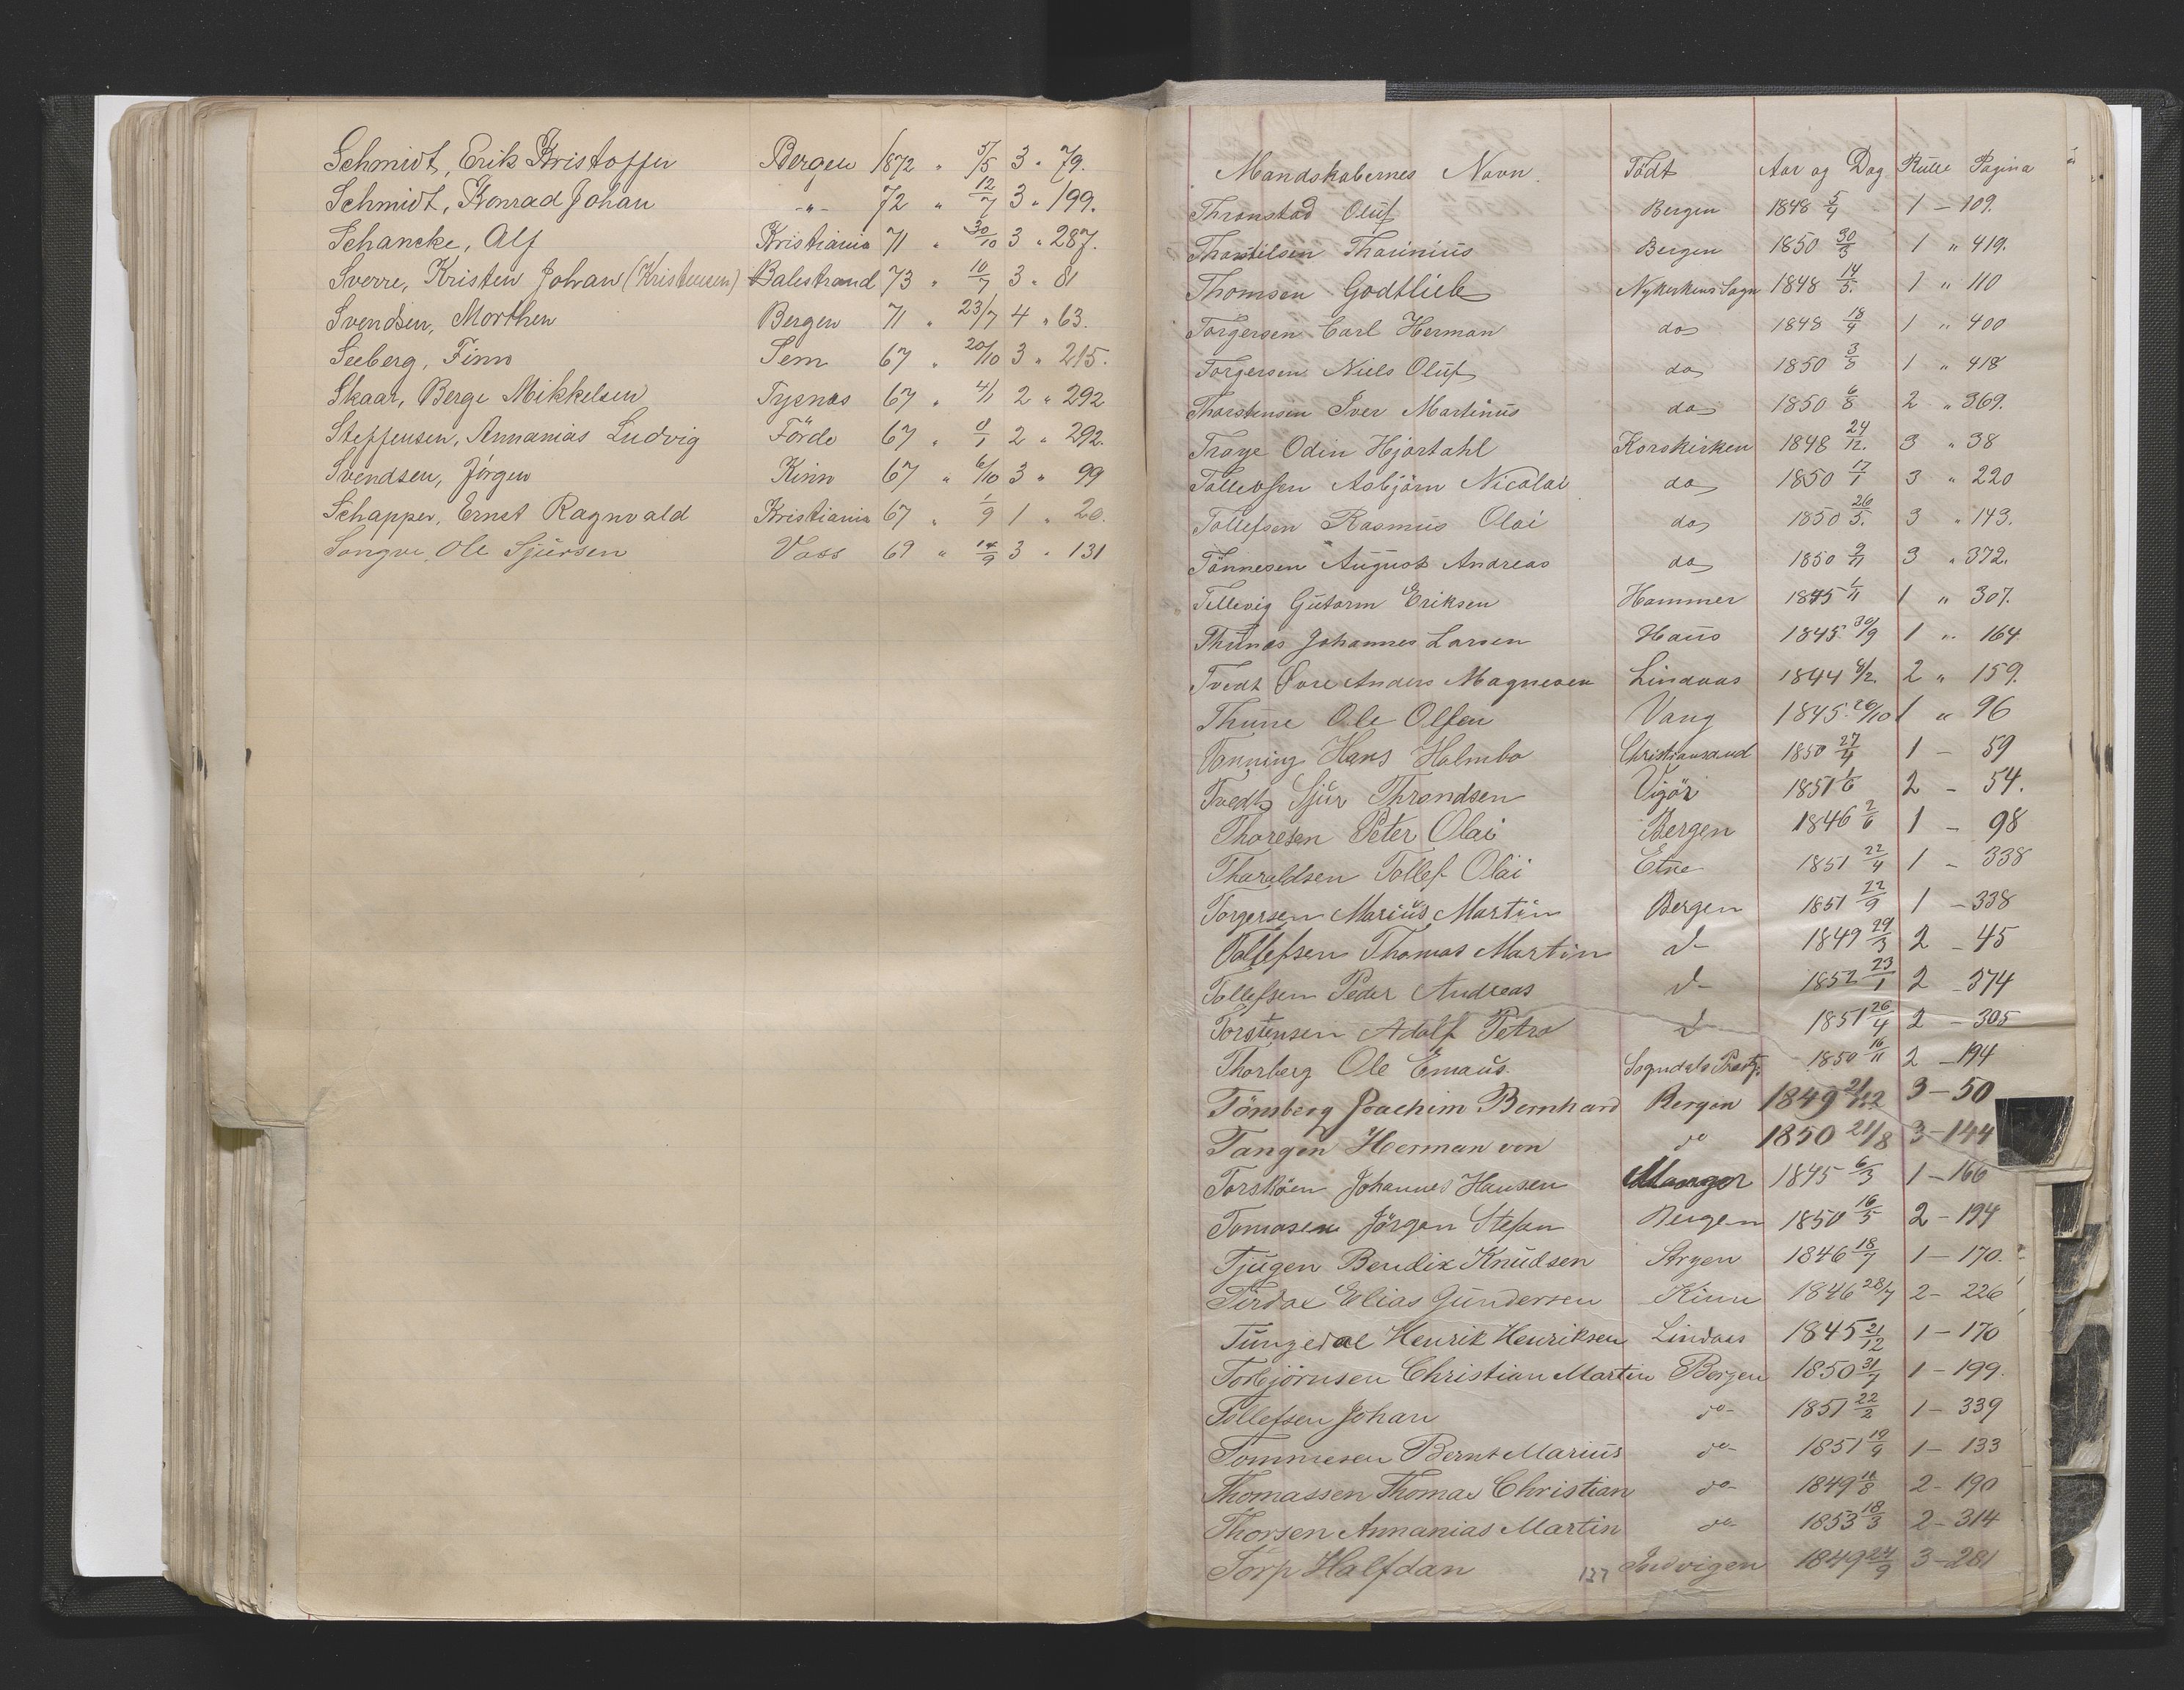 Schmidt, Erik Kristoffer Bergen 1872 " 5/5 3 " 79.
Schmidt, Konrad Johan -"- 72 " 12/7 3 " 199.
Schancke, Alf Kristiania 71 " 30/10 3 " 287.
Sverre, Kristen Johan (Kristensen) Balestrand 73 " 10/7 3 " 81
Svendsen, Morthen Bergen 71 " 23/7 4 " 63.
Seeberg, Finn Sem 67 " 20/10 3 " 215.
Skaar, Berge Mikkelsen Tysnæs 67 " 4/1 2 " 292
Steffensen, Annanias Ludvig Förde 67 " 2 " 292.
Svendsen, Jörgen Kinn 67 " 6/10 3 " 99
Schapper, Ernst Ragnvald Kristiania 67 " 1/9 1 " 20.
Songve, Ole Sjursen Voss 69 " 14/9 3 " 131
Mandskabernes Navn. Födt Aar og Dag Rulle Pagina
Thronstad Oluf Bergen 1848 5/4 1 - 109.
Bergen 1850 30/3 1 " 419.
Thomsen Godtlieb Nykirkens Sogn 1848 14/5. 1 " 110
Torgersen Carl Herman do 1848 18/4 1 " 400
Torgersen Niels Oluf do 1850 3/8 1 " 418
Thorstensen Iver Martinus do 1850 6/8 2 " 369.
Traye Odin Hjortahl Korskirken 1848 24/12. 3 " 38
Tollevsen Asbjörn Nicolai do 1850 17/1 3 " 220
Tollefsen Rasmus Olai do 1850 26/5. 3 " 143.
Tönnesen August Andreas do 1850 9/11 3 " 372.
Tellevig Gutorm Eriksen Hammer 1845 1/11 1 " 307.
Thunæs Johannes Larsen Haus 1845 30/9 1 " 164
Tvedt Övre Anders Magnesen Lindaas 1844 8/2. 2 " 159.
Thune Ole Olsen Vang 1845. 26/10 1 " 96
Tönning Hans Holmbo Christiansand 1850 27/4 1 - 59
Tvedt Sjur Throndsen Vigör 1851 1/6 2 - 54.
Thoresen Peter Olai Bergen 1846 2/6 1 - 98
Tharaldsen Tollef Olai Etne 1851 22/4 1 - 338
Torgersen Marius Martin Bergen 1851 22/9 1 - 338
Tollefsen Thomas Martin d- 1849 29/3 2 - 45
Tollefsen Peder Andreas d- 1852 23/1 2 - 374
Torstensen Adolf Petro d- 1851 26/4 2 - 305
Thorberg Ole Emaus. Sogndals Præstg. 1850 16/11 2 - 194
Tönsberg Joachim Bernhard Bergen 1849 21/12 3 - 50
Tangen Herman von do 1850 21/8 3 - 144
Torsköen Johannes Hansen Manger 1845 6/3 1 - 166
Tomasen Jörgen Stefen Bergen 1850 16/5 2 - 194
Tjugen Bendix Knudsen Stryen 1846 18/7 1 - 170.
Tirdal Elias Gundersen Kinn 1846 28/7 2 - 226
Tungedal Henrik Henriksen Lindaas 1845 21/12 1 - 170
Torbjörnsen Christian Martin Bergen 1850 31/7 1 - 199.
Tollefsen Johan do- 1851 22/2 1 - 339
Tommesen Bernt Marius do- 1851 19/9 1 - 133
Thomassen Thomas Christian do- 1849 2 - 190
Thorsen Annanias Martin do- 1853 18/3 2 - 314
Torp Halfdan 137 Indvigen 1849 24/9 3 - 281